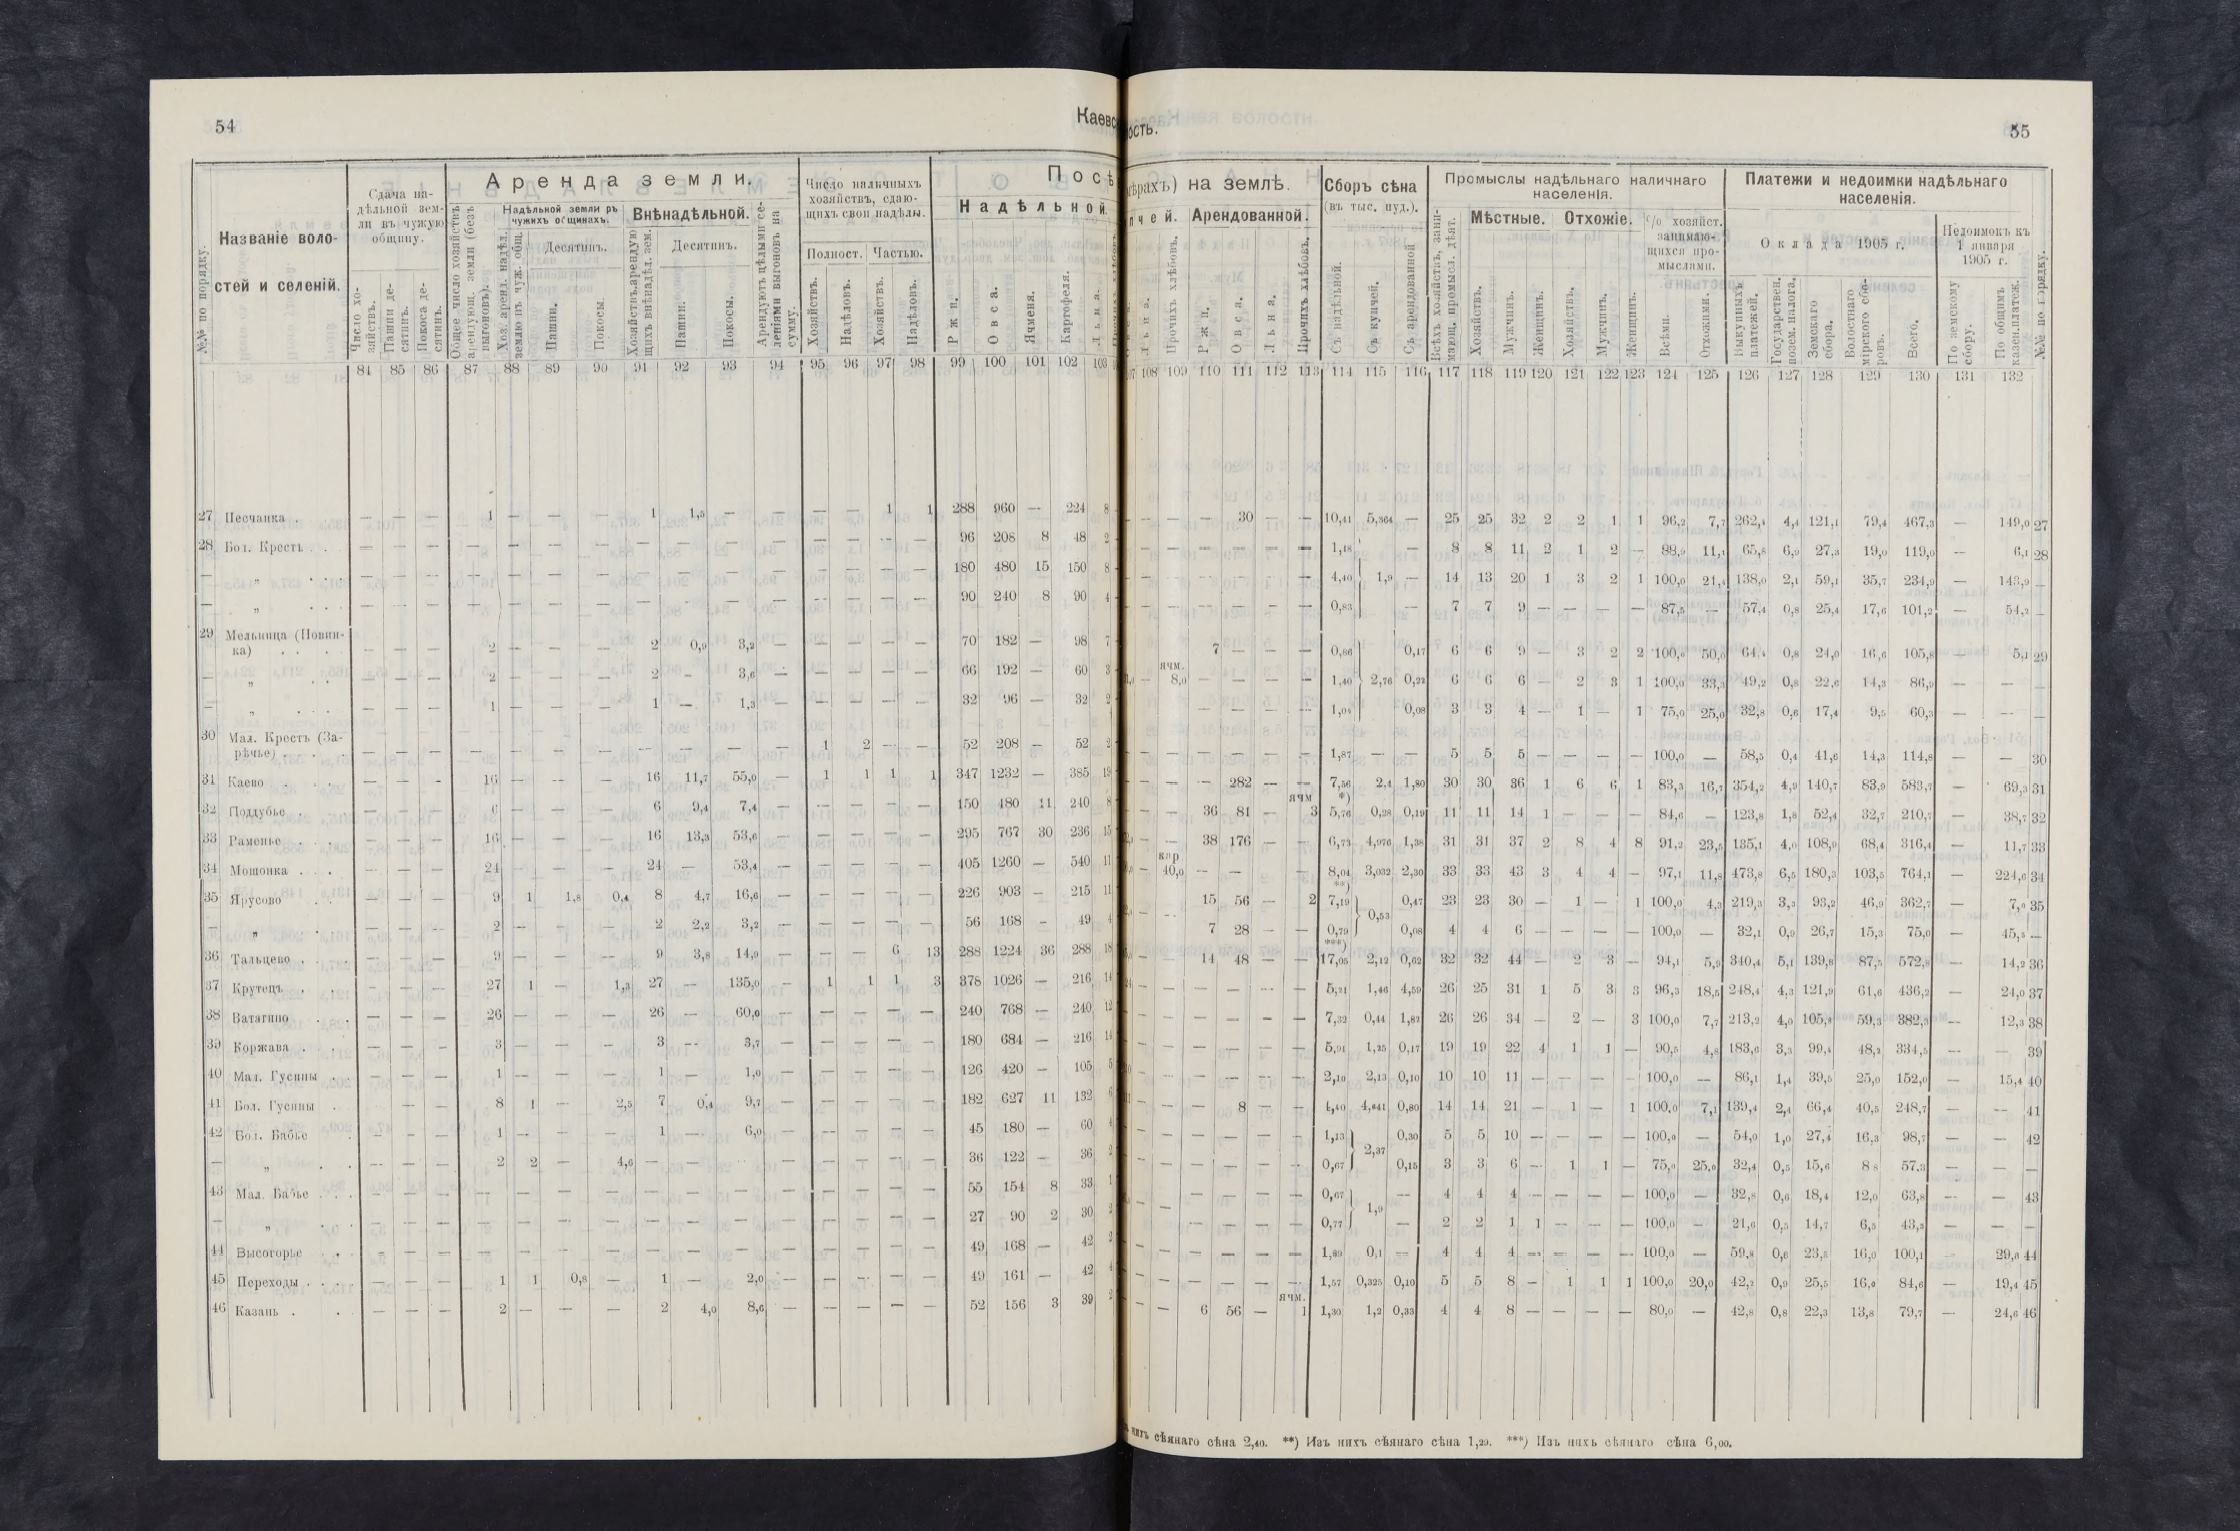 54
Каевс
ость.
55
№№ по порядку.
Названіе воло-
стей и селеній.
Сдача на-
дѣльной зем-
ли въ чужую
общину.
Число хо-
зяйствъ.
Пашни де-
сятинъ.
Покоса де-
сятинъ.
Аренда земли.
Общее число хозяйствъ
арендующ. земли (безъ
выгоновъ).
Надѣльной земли въ
чужихъ общинахъ.
Хоз. аренд. надѣл.
землю въ чуж. общ.
Десятинъ.
Пашни.
Покосы.
Внѣнадѣльной.
Хозяйствъ арендую
щихъ внѣнадѣл. зем.
Десятинъ.
Пашни.
Покосы.
Арендуютъ цѣлыми се-
леніями выгоновъ на
сумму.
Число наличныхъ
хозяйствъ, сдаю-
щихъ свои надѣлы.
Полност. Частью.
Хозяйствъ.
Надѣловъ.
Хозяйствъ.
Надѣловъ.
Посѣ
Надѣльной.
Ржи.
Овса.
Ячменя.
Картофеля.
Льна.
ѣрахъ) на землѣ.
пчей. Арендованной.
Льна.
Прочихъ хлѣбовъ.
Ржи.
Овса.
Льна.
Прочихъ хлѣбовъ.
Сборъ сѣна
(въ тыс. пуд.).
Съ надѣльной.
Съ купчей.
Съ арендованной
Промыслы надѣльнаго наличнаго
населенія.
Всѣхъ хозяйствъ, зани-
мающ. промысл. дѣят.
Мѣстные. Отхожіе.
Хозяйствъ.
Мужчинъ.
Женщинъ.
Хозяйствъ.
Мужчинъ.
Женщинъ.
% хозяйст.
занимаю-
щихся про-
мыслами.
Всѣми.
Отхожими.
Платежи и недоимки надѣльнаго
населенія.
Оклада 1905 г.
Выкупныхъ
платежей.
Государствен.
позем. налога.
Земскаго
сбора.
Волостнаго
мірского сбо-
ровъ.
Всего.
Недоимокъ къ
1 января
1905 г.
По земскому
сбору.
По общимъ
казен.платеж.
№№ по порядку.
84 85 86 87 88 89 90 91 92 93 94 95 96 97 98 99 100 101 102 103
108 109 110 111 112 113 114 115 116 117 118 119 120 121 122 123 124 125 126 127 128 129 130 131 132
27 Песчанка . — — — 1 — — — 1 1,5 — — — — 1 1 288 960 — 224 8
— — — 30 — — 10,41 5,364 — 25 25 32 2 2 1 1 96,2 7,7 262,4 4,4 121,1 79,4 467,3 — 149,0 27
28 Бол. Крестъ . . — — — — — — — — — — — — — — — 96 208 8 48 2
— — — — — — 1,18 — 8 8 11 2 1 2 — 88,9 11,1 65,8 6,9 27,3 19,0 119,0 — 6,1 28
— „ . . — — — — — — — — — — — — — — — 180 480 15 150 8
— — — — — — 4,40 1,9 — 14 13 20 1 3 2 1 100,0 21,4 138,0 2,1 59,1 35,7 234,9 — 143,9 —
— „ . . . — — — — — — — — — — — — — — — 90 240 8 90 4
— — — — — — 0,83 — 7 7 9 — — — — 87,5 — 57,4 0,8 25,4 17,6 101,2 — 54,2 —
29 Мельница (Новин-
ка) . . . — — — 2 — — — 2 0,9 3,2 — — — — — 70 182 — 98 7
7 — — — 0,86 0,17 6 6 9 — 3 2 2 100,0 50,0 64,4 0,8 24,0 16,6 105,8 — 5,1 29
— „ . . — — — 2 — — — 2 - 3,6 — — — — — 66 192 — 60 3
ячм.
— 8,0 — — — — 1,40 2,76 0,22 6 6 6 — 2 3 1 100,0 33,3 49,2 0,8 22,6 14,3 86,9 — — —
— „ . . . — — — 1 — — — 1 — 1,3 — — — — — 32 96 — 32 2
— — — — 1,04 0,08 3 3 4 — 1 — 1 75,0 25,0 32,8 0,6 17,4 9,5 60,3 — — —
30 Мал. Крестъ (За-
рѣчье) . . . — — — — — — — — — — — 1 2 — — 52 208 — 52 2
— — — — — — 1,87 — — 5 5 5 — — — — 100,0 — 58,5 0,4 41,6 14,3 114,8 — — 30
31 Каево . . . — — - 16 — — — 16 11,7 55,0 — 1 1 1 1 347 1232 — 385 19
— — — 282 — — 7,56 2,4 1,80 30 30 36 1 6 6 1 83,3 16,7 354,2 4,9 140,7 83,9 583,7 - 69,3 31
32 Поддубье . — — — 6 — — — 6 9,4 7,4 — — — — — 150 480 11 240 8
*) ячм
— — 36 81 — 3 5,76 0,28 0,19 11 11 14 1 — — — 84,6 — 123,8 1,8 52,4 32,7 210,7 — 38,7 32
33 Раменье . . . — — — 16 — — — 16 13,3 53,6 — — — — — 295 767 30 236 15
— — 38 176 — — 6,73 4,076 1,38 31 31 37 2 8 4 8 91,2 23,5 135,1 4,0 108,9 68,4 316,4 — 11,7 33
34 Мошонка . . . — — — 24 — — — 24 — 53,4 — — — — — 405 1260 — 540 11
кар
— 40,0 — — — 8,04 3,032 2,30 33 33 43 3 4 4 — 97,1 11,8 473,8 6,5 180,3 103,5 764,1 — 224,6 34
35 Ярусово . . — — — 9 1 1,8 0,4 8 4,7 16,6 — — — — — 226 903 — 215 11
**)
15 56 — 2 7,19 0,47 23 23 30 — 1 — 1 100,0 4,3 219,3 3,3 93,2 46,9 362,7 — 7,0 35
0,53
— „ . — — — 2 — — — 2 2,2 3,2 — — — — — 56 168 - 49 4
— — 7 28 — — 0,79 0,08 4 4 6 — — — — 100,0 — 32,1 0,9 26,7 15,3 75,0 — 45,5 —
36 Тальцево . . . — — — 9 — — — 9 3,8 14,0 — — — 6 13 288 1224 36 288 18
***)
— — 14 48 — — 17,05 2,12 0,62 32 32 44 — 2 3 — 94,1 5,9 340,4 5,1 139,8 87,5 572,8 — 14,2 36
37 Крутецъ . . — — — 27 1 — 1,3 27 — 135,0 — 1 1 1 3 378 1026 — 216 14
— — — — — — 5,21 1,46 4,59 26 25 31 1 5 3 3 96,3 18,5 248,4 4,3 121,9 61,6 436,2 — 24,0 37
38 Ватагино . . — — — 26 — — — 26 — 60,0 — — — — — 240 768 — 240 12
— — — — — — 7,32 0,44 1,82 26 26 34 — 2 — 3 100,0 7,7 213,2 4,0 105,8 59,3 382,3 — 12,3 38
39 Коржава . . — — — 3 — — — 3 — 3,7 — — — — — 180 684 — 216 14
— — — — — — 5,91 1,25 0,17 19 19 22 4 1 1 — 90,5 4,8 183,6 3,3 99,4 48,2 334,5 — — 39
40 Мал. Гусины . — — — 1 — — — 1 — 1,0 — — — — — 126 420 — 105 5
— — — — — — 2,10 2,13 0,10 10 10 11 — — — — 100,0 — 86,1 1,4 39,5 25,0 152,0 — 15,4 40
41 Бол. Гусины . — — — 8 1 — 2,5 7 0,4 9,7 — — — — — 182 627 11 132 6
— — — 8 — — 4,841 0,80 14 14 21 — 1 — 1 100,0 7,1 139,4 2,4 66,4 40,5 248,7 — — 41
42 Бол. Бабье . — — — 1 — — — 1 — 6,0 — — — — — 45 180 — 60 4
— — — — — — 1,13 0,30 5 5 10 — — — — 100,0 — 54,0 1,0 27,4 16,3 98,7 — — 42
2,37
— „ . . — — — 2 2 — 4,6 — — — — — — — — 36 122 — 36 2
— — — — — — 0,67 0,15 3 3 6 — 1 1 — 75,0 25,0 32,4 0,5 15,6 8 8 57,3 — — —
43 Мал. Бабье . . . — — — — — — — — — — — — — — — 55 154 8 33 1
— — — — — — 0,67 — 4 4 4 — — — — 100,0 — 32,8 0,6 18,4 12,0 63,8 — — 43
1,9
— „ . . — — — — — — — — — — — — — — — 27 90 2 30 2
— — — — — — 0,77 — 2 2 1 1 — — — 100,0 — 21,6 0,5 14,7 6,5 43,3 — — —
44 Высогорье . . — — — — — — — — — — — — — — — 49 168 — 42 2
— — — — — — 1,89 0,1 — 4 4 4 — — — — 100,0 — 59,8 0,6 23,5 16,0 100,1 — 29,6 44
45 Переходы . . . — — — 1 1 0,8 — 1 — 2,0 — — — — — 49 161 — 42 4
— — — — — — 1,57 0,325 0,10 5 5 8 — 1 1 1 100,0 20,0 42,2 0,9 25,5 16,0 84,6 — 19,4 45
46 Казань . . — — — 2 — — — 2 4,0 8,6 — — — — — 52 156 3 39 2
ячм.
— — 6 56 — 1 1,30 1,2 0,33 4 4 8 — — — — 80,0 — 42,8 0,8 22,3 13,8 79,7 — 24,6 46
нихъ сѣянаго сѣна 2,40. **) Изъ нихъ сѣянаго сѣна 1,29. ***) Изъ нихъ сѣянаго сѣна 6,00.